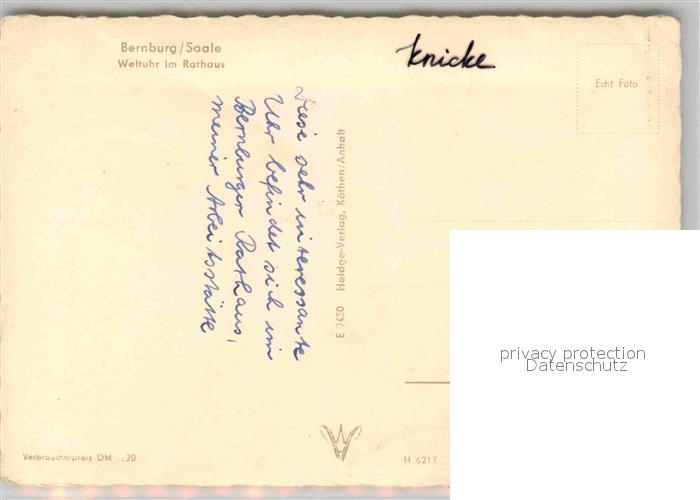 Bernburg/Saale
Weltuhr im Rathaus
knicke
Echt Foto
Diese sehr interessante
Uhr befindet sich im
Bernburger Rathaus,
meiner Arbeitsstätte
E 2430 Heldge-Verlag, Köthen/Anhalt
privacy protection
Datenschutz
Verbraucherpreis DM -.20
H 6217